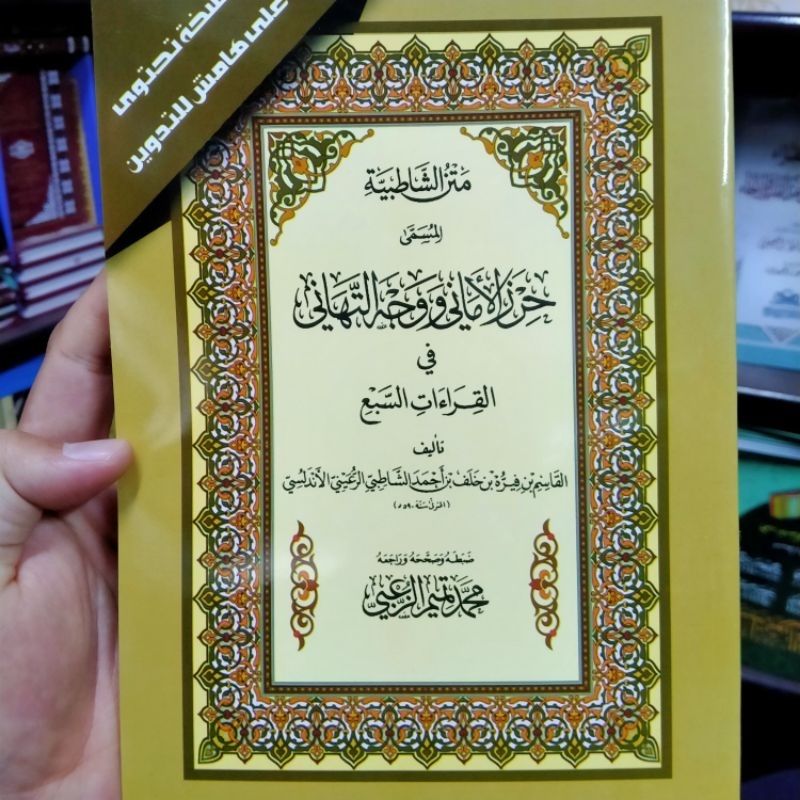 نسخة تحتوي
على هامش للتدوين
مَتْنُ الشَّاطِبِيَّةِ
المُسَمَّى
حِرْزَ الأَمَانِي وَوَجْهَ التَّهَانِي
فِي
القِرَاءَاتِ السَّبْعِ
تأليف
القَاسِم بن فِيرُّهْ بن خَلَف بن أَحْمَدَ الشَّاطِبِيِّ الرُّعَيْنِيِّ الأَنْدَلُسِيِّ
(المتوفى سنة ٥٩٠ هـ)
ضَبَطَهُ وَصَحَّحَهُ وَرَاجَعَهُ
مُحَمَّد تَمِيم الزُّعْبِيّ